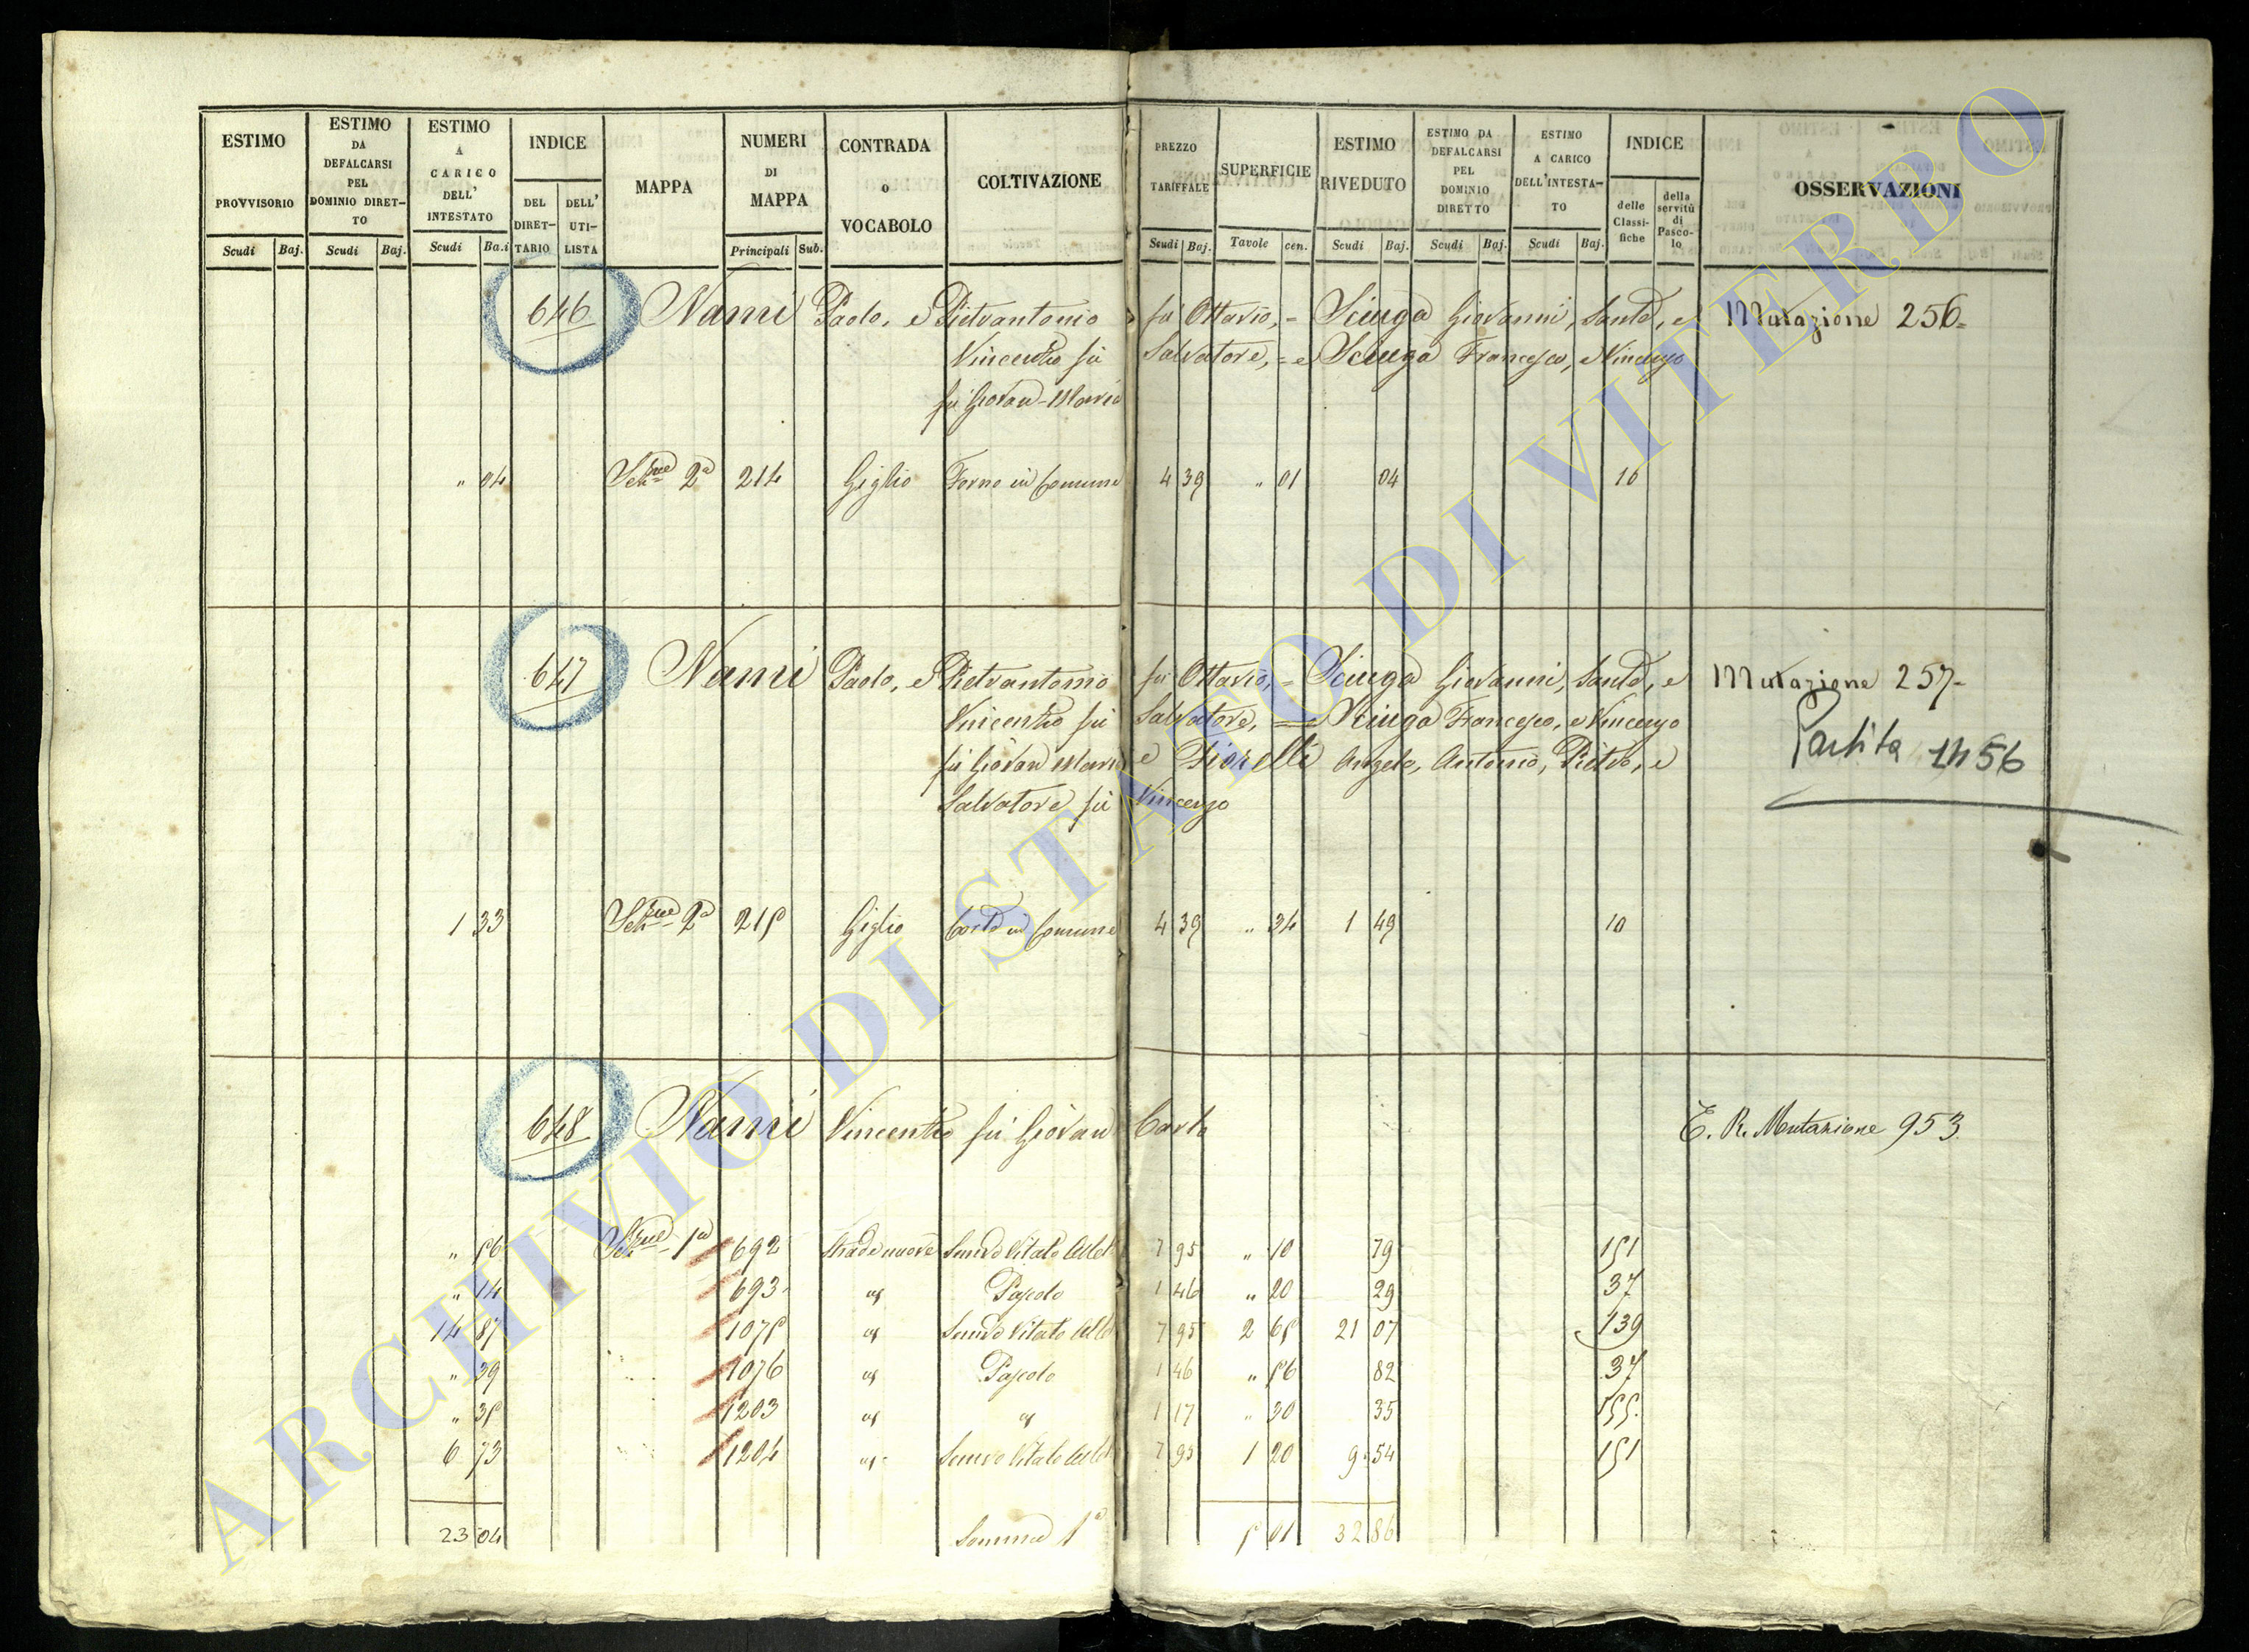 ESTIMO PROVVISORIO
ESTIMO DA DEFALCARSI PEL DOMINIO DIRET-TO
ESTIMO A CARICO DELL' INTESTATO
INDICE
DEL DIRET-TARIO
DELL' UTI-LISTA
MAPPA
NUMERI DI MAPPA
CONTRADA O VOCABOLO
COLTIVAZIONE
PREZZO TARIFFALE
SUPERFICIE
ESTIMO RIVEDUTO
ESTIMO DA DEFALCARSI PEL DOMINIO DIRETTO
ESTIMO A CARICO DELL'INTESTA-TO
INDICE
delle Classi-fiche
della servitù di Pasco-lo
OSSERVAZIONI
Scudi Baj. Scudi Baj. Scudi Ba.i Principali Sub. Scudi Baj. Tavole cen. Scudi Baj. Scudi Baj. Scudi Baj.
646 Nami Paolo, e Pietrantonio fù Ottavio, = Sciuga Giovanni, Santo, e Mutazione 256=
Vincenzo fù Salvatore, = e Sciuga Francesco, e Vincenzo
fù Giovan-Maria
" 04 2ª 214 Giglio Forno in Comune 4 39 " 01 04 10
647 Nami Paolo, e Pietrantonio fù Ottavio, = Sciuga Giovanni, Santo, e Mutazione 257=
Vincenzo fù Salvatore, = e Sciuga Francesco, e Vincenzo
Partita 1456
fù Giovan Maria e Fiorelli Angelo, Antonio, Pietro, e
Salvatore fù Vincenzo
1 33 2ª 215 Giglio Corte in Comune 4 39 " 34 1 49 10
648 Nami Vincenzo fù Giovan Carlo E. R. Mutazione 953
" 56 1ª 692 Strade nuove Semvo Vitato 7 95 " 10 79 151
" 14 693 Pascolo 1 46 " 20 29 37
14 87 1075 Semvo Vitato 7 95 2 65 21 07 139
" 39 1076 Pascolo 1 46 " 56 82 37
" 35 1203 1 17 " 30 35 155
6 73 1204 Semvo Vitato 7 95 1 20 9 54 151
23 04 Somma 1ª 5 01 32 86
ARCHIVIO DI STATO DI VITERBO